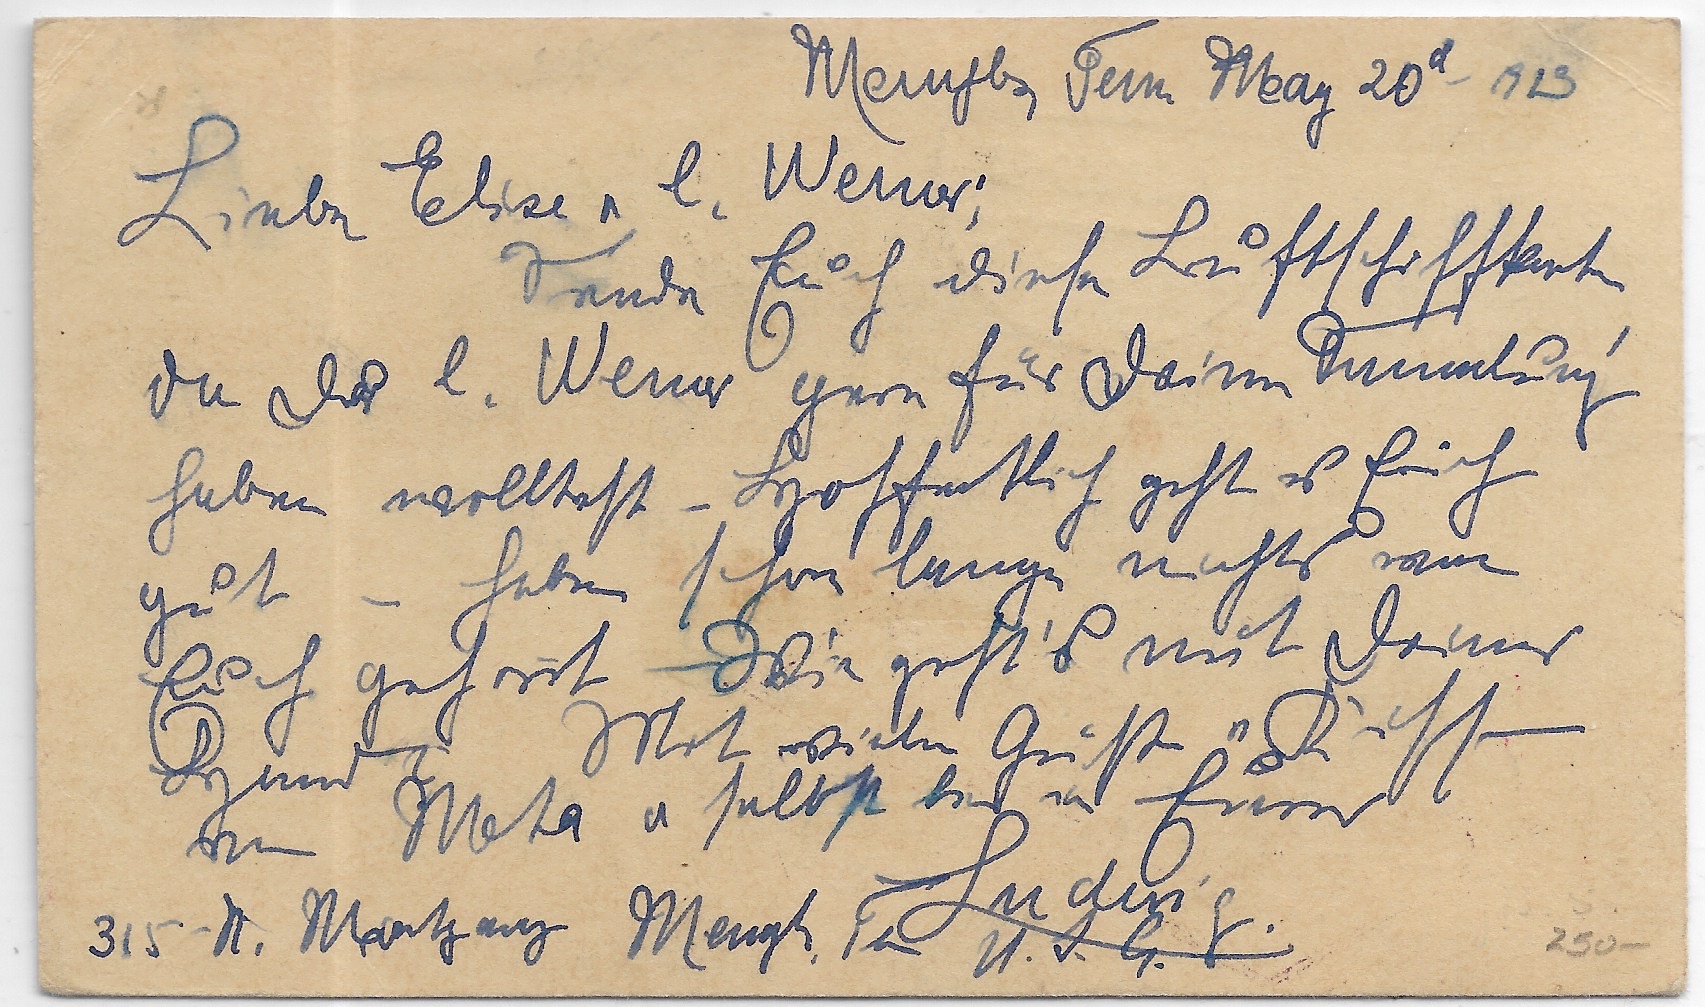 Memphis Tenn May 20d
Liebe Elise u l. Werner;
Sende Euch diese Luftschiffkarte
da Du l. Werner gern für Deine Sammlung
haben wolltest – Hoffentlich geht es Euch
gut – haben schon lange nichts von
Euch gehört – Wie geht's mit Deiner
Hand? Mit vielen Grüße u Küsse
von Meta u selbst bin ich Euer
Ludwig.
315 - N. Montgomy Memph. Ten U.S.A.
250–